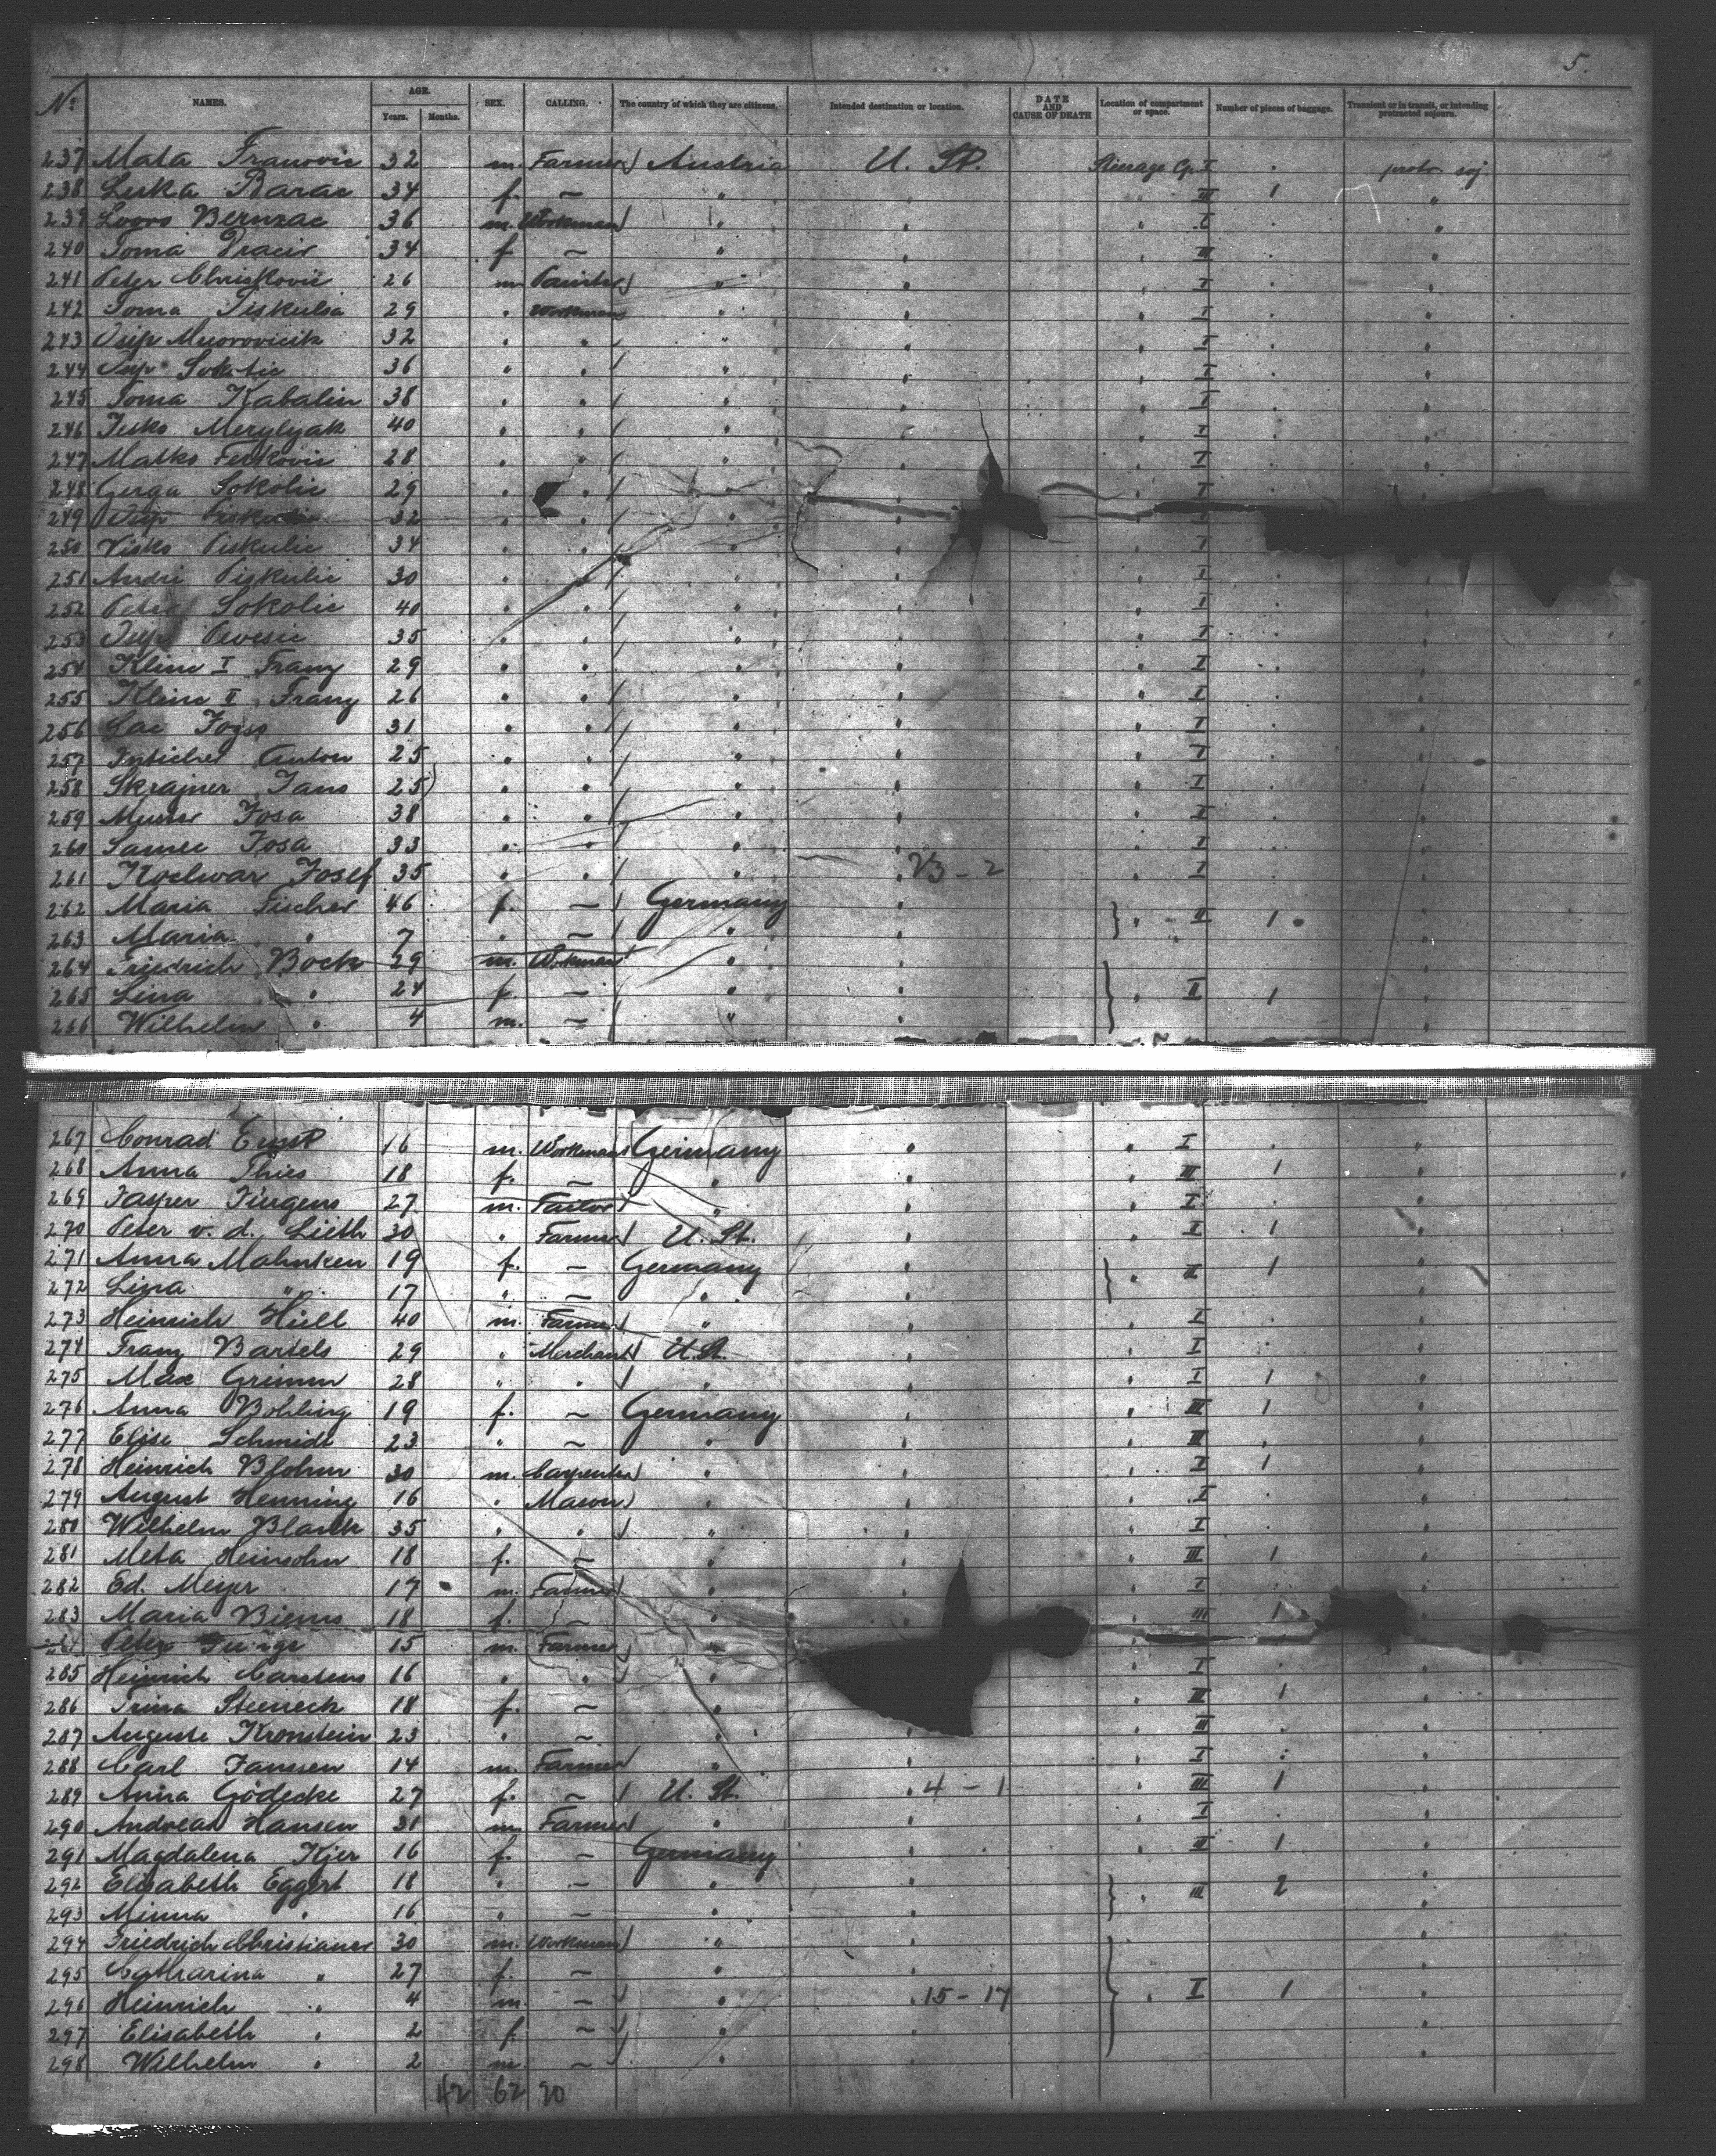 5.
No. NAMES. AGE. Years. Months. SEX. CALLING. The country of which they are citizens. Intended destination or location. DATE AND CAUSE OF DEATH Location of compartment or space. Number of pieces of baggage. Transient or in transit, or intending protracted sojourn.
237 Mata Franovic 32 m. Farmer Austria U. St. Steerage Cp. I " protr. soj
238 Luka Barac 34 f. — " " " III 1 "
239 Lovro Bernzac 36 m. Workman " " " I " "
240 Toma Dracic 34 f — " " " III "
241 Peter Chriskovic 26 m Painter " " " I " "
242 Toma Piskulia 29 " Workman " " " I " "
243 32 " " " " " I " "
244 36 " " " " " I " "
245 Toma Kabalin 38 " " " " " I " "
246 40 " " " " " I " "
247 Matko 28 " " " " " I " "
248 Gerga Sokolic 29 " " " " " I
249 32 " " " " I
250 Visko Piskulic 34 " " " " " I
251 Andri Piskulic 30 " " " " " I "
252 Peter Sokolic 40 " " " " " I " "
253 35 " " " " " I " "
254 Klinc I Franz 29 " " " " " I " "
255 Klinc II Franz 26 " " " " " I " "
256 31 " " " " " I " "
257 Anton 25 " " " " " I " "
258 Skrajner Jans 25 " " " " " I " "
259 Josa 38 " " " " " I " "
260 Samec Josa 33 " " " " " I " "
261 Kochvar Josef 35 " " " " 23 - 2 " I "
262 Maria Fischer 46 f. — Germany " " II 1 "
263 Maria " 7 " — " " "
264 Friedrich Bock 29 m. Workman " " "
265 Lina " 24 f. — " " " II 1 "
266 Wilhelm " 4 m. — " " "
267 Conrad Ernst 16 m. Workman Germany " " I " "
268 Anna Thies 18 f. — " " " III 1 "
269 Jasper Jürgens 27 m. Tailor " " " I " "
270 Peter v. d. Lieth 30 " Farmer U. St. " " I 1 "
271 Anna Mahnken 19 f. — Germany " " II 1 "
272 Lina " 17 " — " " "
273 Heinrich Hill 40 m. Farmer " " " I " "
274 Franz Bartels 29 " Merchant U. St. " " I " "
275 Max Grimm 28 " " " " " I 1 "
276 Anna Bohling 19 f. — Germany " " III 1 "
277 Elise Schmidt 23 " — " " " III " "
278 Heinrich Blohm 30 m. Carpenter " " " I 1 "
279 August Henning 16 " Mason " " " I " "
280 Wilhelm Blank 35 " " " " " I " "
281 Meta Heinsohn 18 f. — " " " III 1 "
282 Ed. Meyer 17 m. Farmer " " " I "
283 Maria Biems 18 f. — " " III 1
Peter 15 m. Farmer "
285 Heinrich Carstens 16 " " " " I " "
286 Trina Steeneck 18 f. — " " III 1 "
287 Auguste Kronstein 23 " — " " " III " "
288 Carl Janssen 14 m. Farmer " " " I " "
289 Anna Gödecke 27 f. — U. St. " 4 - 1 " III 1 "
290 Andreas Hansen 31 m. Farmer " " " I " "
291 Magdalena Kjer 16 f. — Germany " " III 1 "
292 Elisabeth Eggert 18 " — " " " III 2 "
293 Minna " 16 " — " " "
294 Friedrich Christianes 30 m. Workman " " "
295 Catharina " 27 f. — " " "
296 Heinrich " 4 m. — " " 15 - 17 " I 1 "
297 Elisabeth " 2 f — " " "
298 Wilhelm " 2 m. — " " "
42 62 20